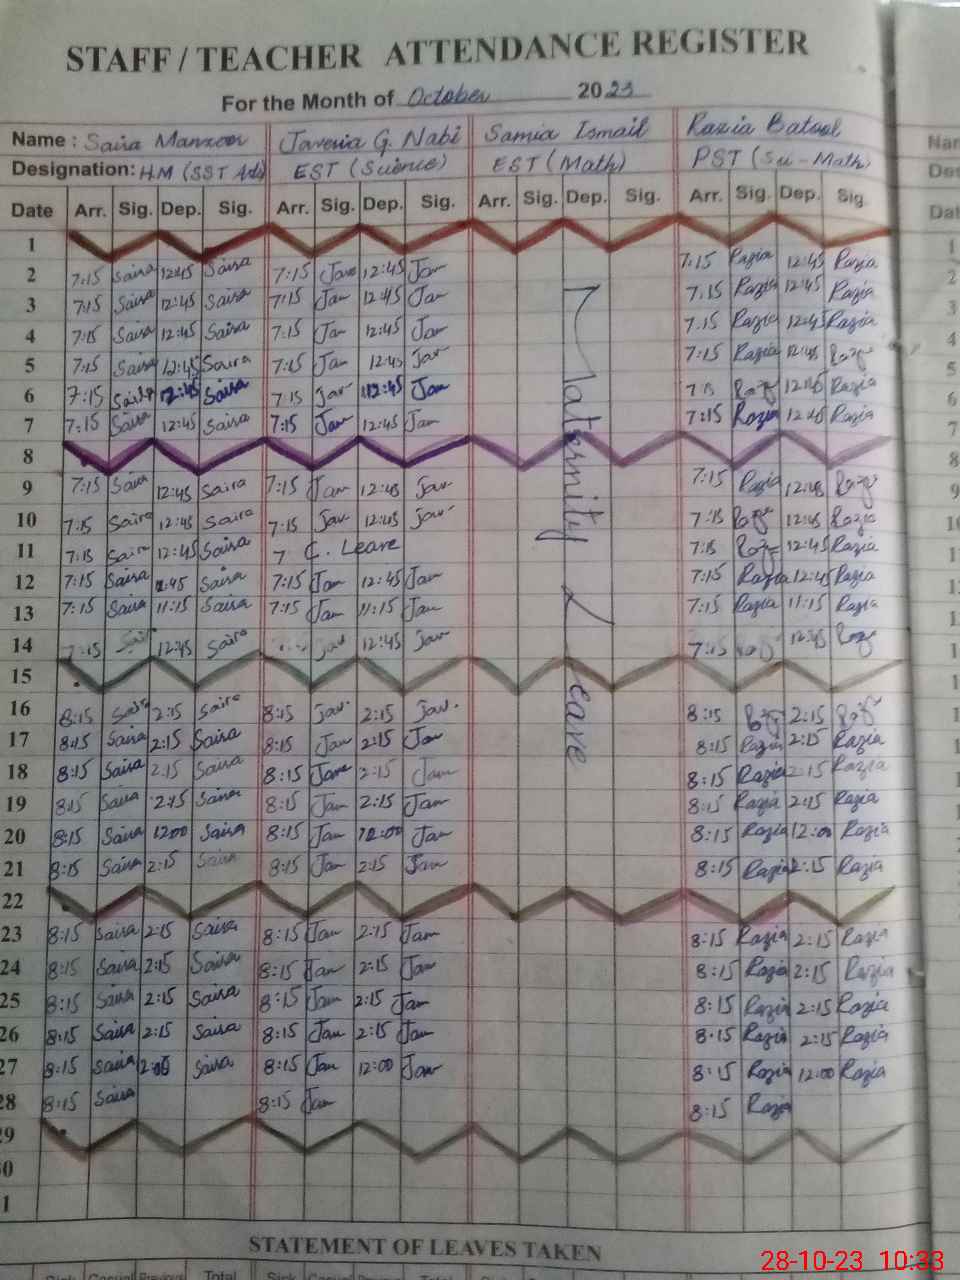 STAFF / TEACHER ATTENDANCE REGISTER
For the Month of October 2023
Name : Saira Manzoor Javeria G. Nabi Samia Ismail Razia Batool
Designation: HM (SST Arts) EST (Science) EST (Math) PST (Sci-Math)
Date Arr. Sig. Dep. Sig. Arr. Sig. Dep. Sig. Arr. Sig. Dep. Sig. Arr. Sig. Dep. Sig.
1
2 7:15 Saira 12:45 Saira 7:15 Jave 12:45 Jav 7:15 Razia 12:45 Razia
3 7:15 Saira 12:45 Saira 7:15 Jav 12:45 Jav 7:15 Razia 12:45 Razia
4 7:15 Saira 12:45 Saira 7:15 Jav 12:45 Jav 7:15 Razia 12:45 Razia
5 7:15 Saira 12:45 Saira 7:15 Jav 12:45 Jav 7:15 Razia 12:45
6 7:15 Saira 12:45 Saira 7:15 Jav 12:45 Jav 7:15 12:45 Razia
7 7:15 Saira 12:45 Saira 7:15 Jav 12:45 Jav 7:15 Razia 12:45 Razia
8
Maternity Leave
9 7:15 Saira 12:45 Saira 7:15 Jav 12:45 Jav 7:15 Razia 12:45
10 7:15 Saira 12:45 Saira 7:15 Jav 12:45 Jav 7:15 12:45 Razia
11 7:15 Saira 12:45 Saira 7 C. Leave 7:15 12:45 Razia
12 7:15 Saira 12:45 Saira 7:15 Jav 12:45 Jav 7:15 Razia 12:45 Razia
13 7:15 Saira 11:15 Saira 7:15 Jav 11:15 Jav 7:15 Razia 11:15 Razia
14 7:15 Saira 12:45 Saira Jav 12:45 Jav 7:15 12:45
15
16 8:15 Saira 2:15 Saira 8:15 Jav. 2:15 Jav. 8:15 2:15
17 8:15 Saira 2:15 Saira 8:15 Jav 2:15 Jav 8:15 Razia 2:15 Razia
18 8:15 Saira 2:15 Saira 8:15 Jave 2:15 Jav 8:15 Razia 2:15 Razia
19 8:15 Saira 2:15 Saira 8:15 Jav 2:15 Jav 8:15 Razia 2:15 Razia
20 8:15 Saira 12:00 Saira 8:15 Jav 12:00 Jav 8:15 Razia 12:00 Razia
21 8:15 Saira 2:15 Saira 8:15 Jav 2:15 Jav 8:15 Razia 2:15 Razia
22
23 8:15 Saira 2:15 Saira 8:15 Jav 2:15 Jav 8:15 Razia 2:15 Razia
24 8:15 Saira 2:15 Saira 8:15 Jav 2:15 Jav 8:15 Razia 2:15 Razia
25 8:15 Saira 2:15 Saira 8:15 Jav 2:15 Jav 8:15 Razia 2:15 Razia
26 8:15 Saira 2:15 Saira 8:15 Jav 2:15 Jav 8:15 Razia 2:15 Razia
27 8:15 Saira Saira 8:15 Jav 12:00 Jav 8:15 Razia 12:00 Razia
28 8:15 Saira 8:15 Jav 8:15 Razia
29
30
1
STATEMENT OF LEAVES TAKEN
28-10-23 10:33